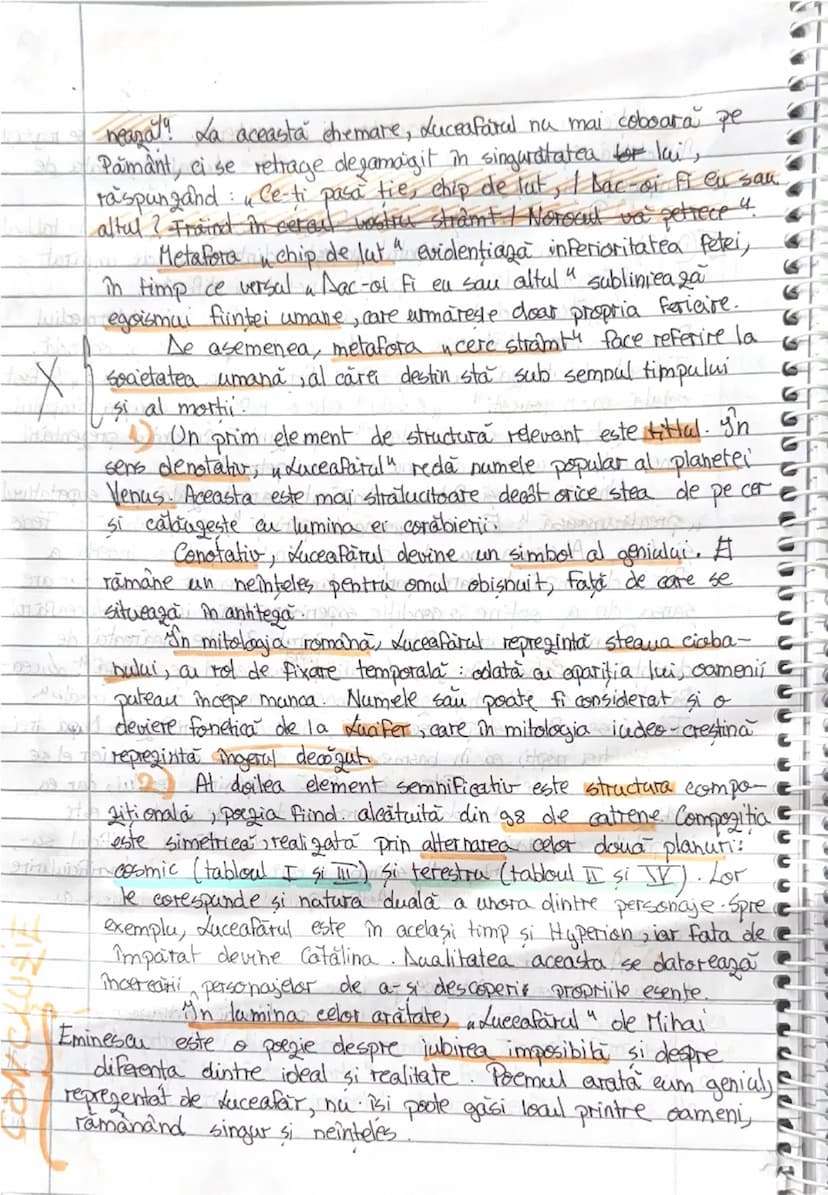 nează!" La această chemare, Luceafărul nu mai coboară pe
Pământ, ci se retrage dezamăgit în singurătatea lor lui,
răspunzând : „Ce-ți pasă ție, chip de lut, / Dac-oi fi eu sau
altul ? Trăind în cercul vostru strâmt / Norocul vă petrece".
Metafora „chip de lut" evidențiază inferioritatea fetei,
în timp ce versul „Dac-oi fi eu sau altul" subliniează
egoismul ființei umane, care urmărește doar propria fericire.
De asemenea, metafora „cerc strâmt" face referire la
X societatea umană, al cărei destin stă sub semnul timpului
și al morții.
1) Un prim element de structură relevant este titlul. În
sens denotativ, „Luceafărul" redă numele popular al planetei
Venus. Aceasta este mai strălucitoare decât orice stea de pe cer
și călăuzește cu lumina ei corăbierii.
Conotativ, Luceafărul devine un simbol al geniului. El
rămâne un neînțeles pentru omul obișnuit, față de care se
situează în antiteză.
În mitologia română, Luceafărul reprezintă steaua cioba-
nului, cu rol de fixare temporală : odată cu apariția lui, oamenii
puteau începe munca. Numele său poate fi considerat și o
deviere fonetică de la Lucifer, care în mitologia iudeo-creștină
reprezintă îngerul decăzut.
2) Al doilea element semnificativ este structura compo-
zițională, poezia fiind alcătuită din 98 de catrene. Compoziția
este simetrică, realizată prin alternarea celor două planuri:
cosmic (tabloul I și III) și terestru (tabloul II și IV). Lor
le corespunde și natura duală a unora dintre personaje. Spre
exemplu, Luceafărul este în același timp și Hyperion, iar fata de
împărat devine Cătălina. Dualitatea aceasta se datorează
încercării personajelor de a-și descoperi propriile esențe.
În lumina celor arătate, „Luceafărul" de Mihai
CONCLUZIE
Eminescu este o poezie despre iubirea imposibilă și despre
diferența dintre ideal și realitate. Poemul arată cum geniul,
reprezentat de Luceafăr, nu-își poate găsi locul printre oameni,
rămânând singur și neînțeles.